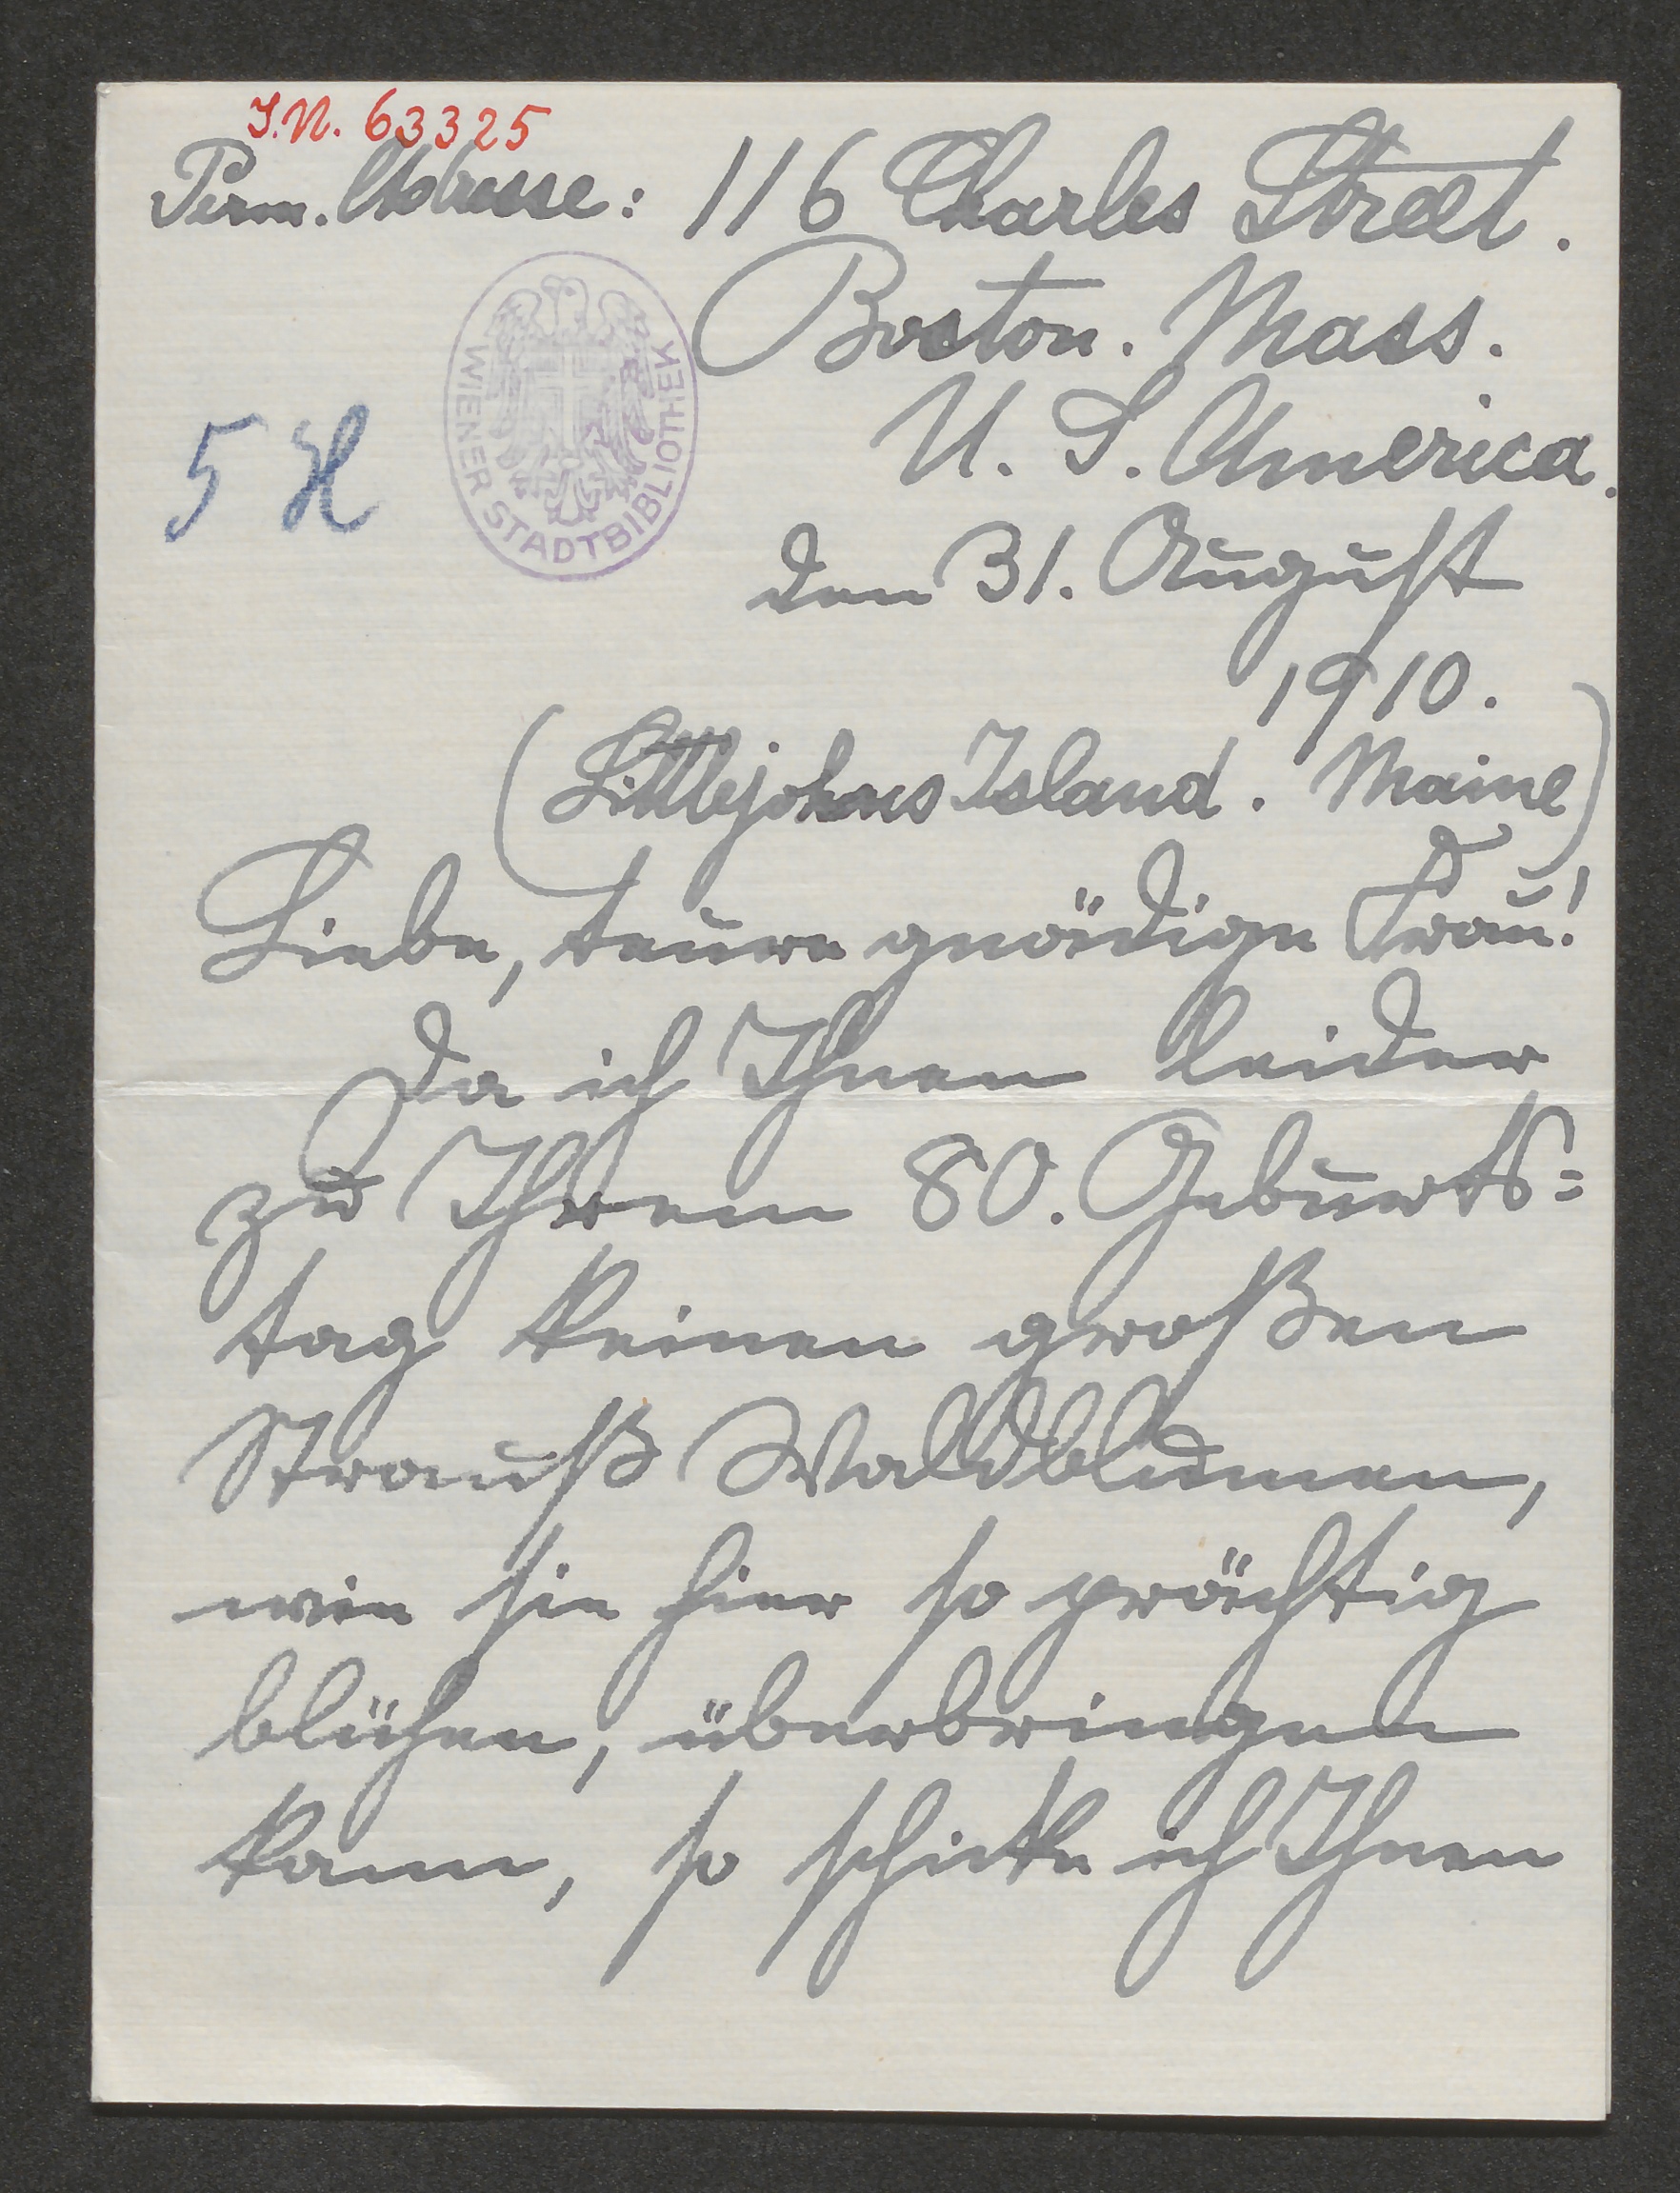 I.N. 63325
Perm. Adresse: 116 Charles Street.
Boston. Mass.
U. S. America.
5 H
WIENER STADTBIBLIOTHEK
den 31. August
1910.
(Littlejohns Island. Maine)
Liebe, teure gnädige Frau!
Da ich Ihnen leider
zu Ihrem 80. Geburts=
tag keinen großen
Strauß Waldblumen,
wie sie hier so prächtig
blühen, überbringen
kann, so schicke ich Ihnen